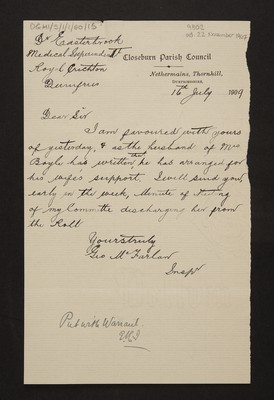 DGH1/5/1/1/60/15
9502
ad. 22 November 1902
Dr Easterbrook
Medical Superindent
Royal Crichton
Dumfries
Closeburn Parish Council
Nethermains, Thornhill,
Dumfriesshire,
16th July 1909
Dear Sir
I am favoured with yours
of yesterday, & as the husband of Mrs
Boyle has written he has arranged for
his wife's support I will send you,
early in the week, Minute of Meeting
of my Committe discharging her from
the Roll
Yours truly
Geo McFarlan
Inspr
Put with Warrant.